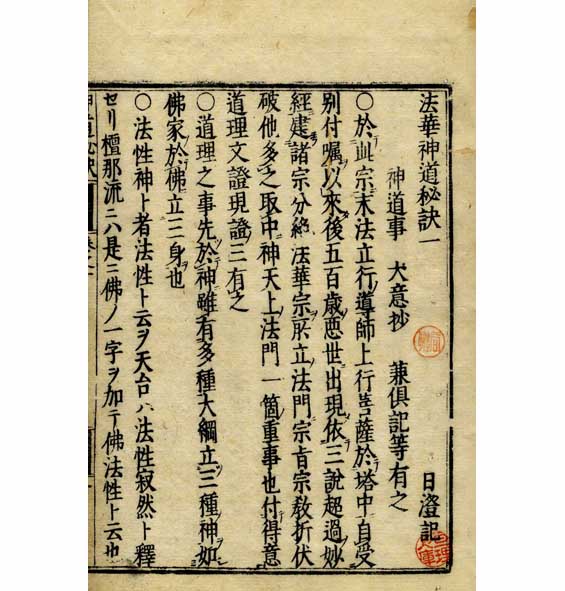 法華神道秘訣一
神道事　大意抄　兼俱記等有之
日澄記
○於此宗末法立行導師上行菩薩於塔中自受
別付嘱以來後五百歳悪世出現依三說超過妙
經建諸宗分絶法華宗所立法門宗旨宗教折伏
破他多之取中神天上法門一箇重事也付得意
道理文證現證三有之
○道理之事先於神雖有多種大綱立三種神如
佛家於佛立三身也
○法性神ト者法性ト云ヲ天台ハ法性寂然ト釋
セリ檀那流ニハ是ニ佛ノ一字ヲ加テ佛法性ト云也